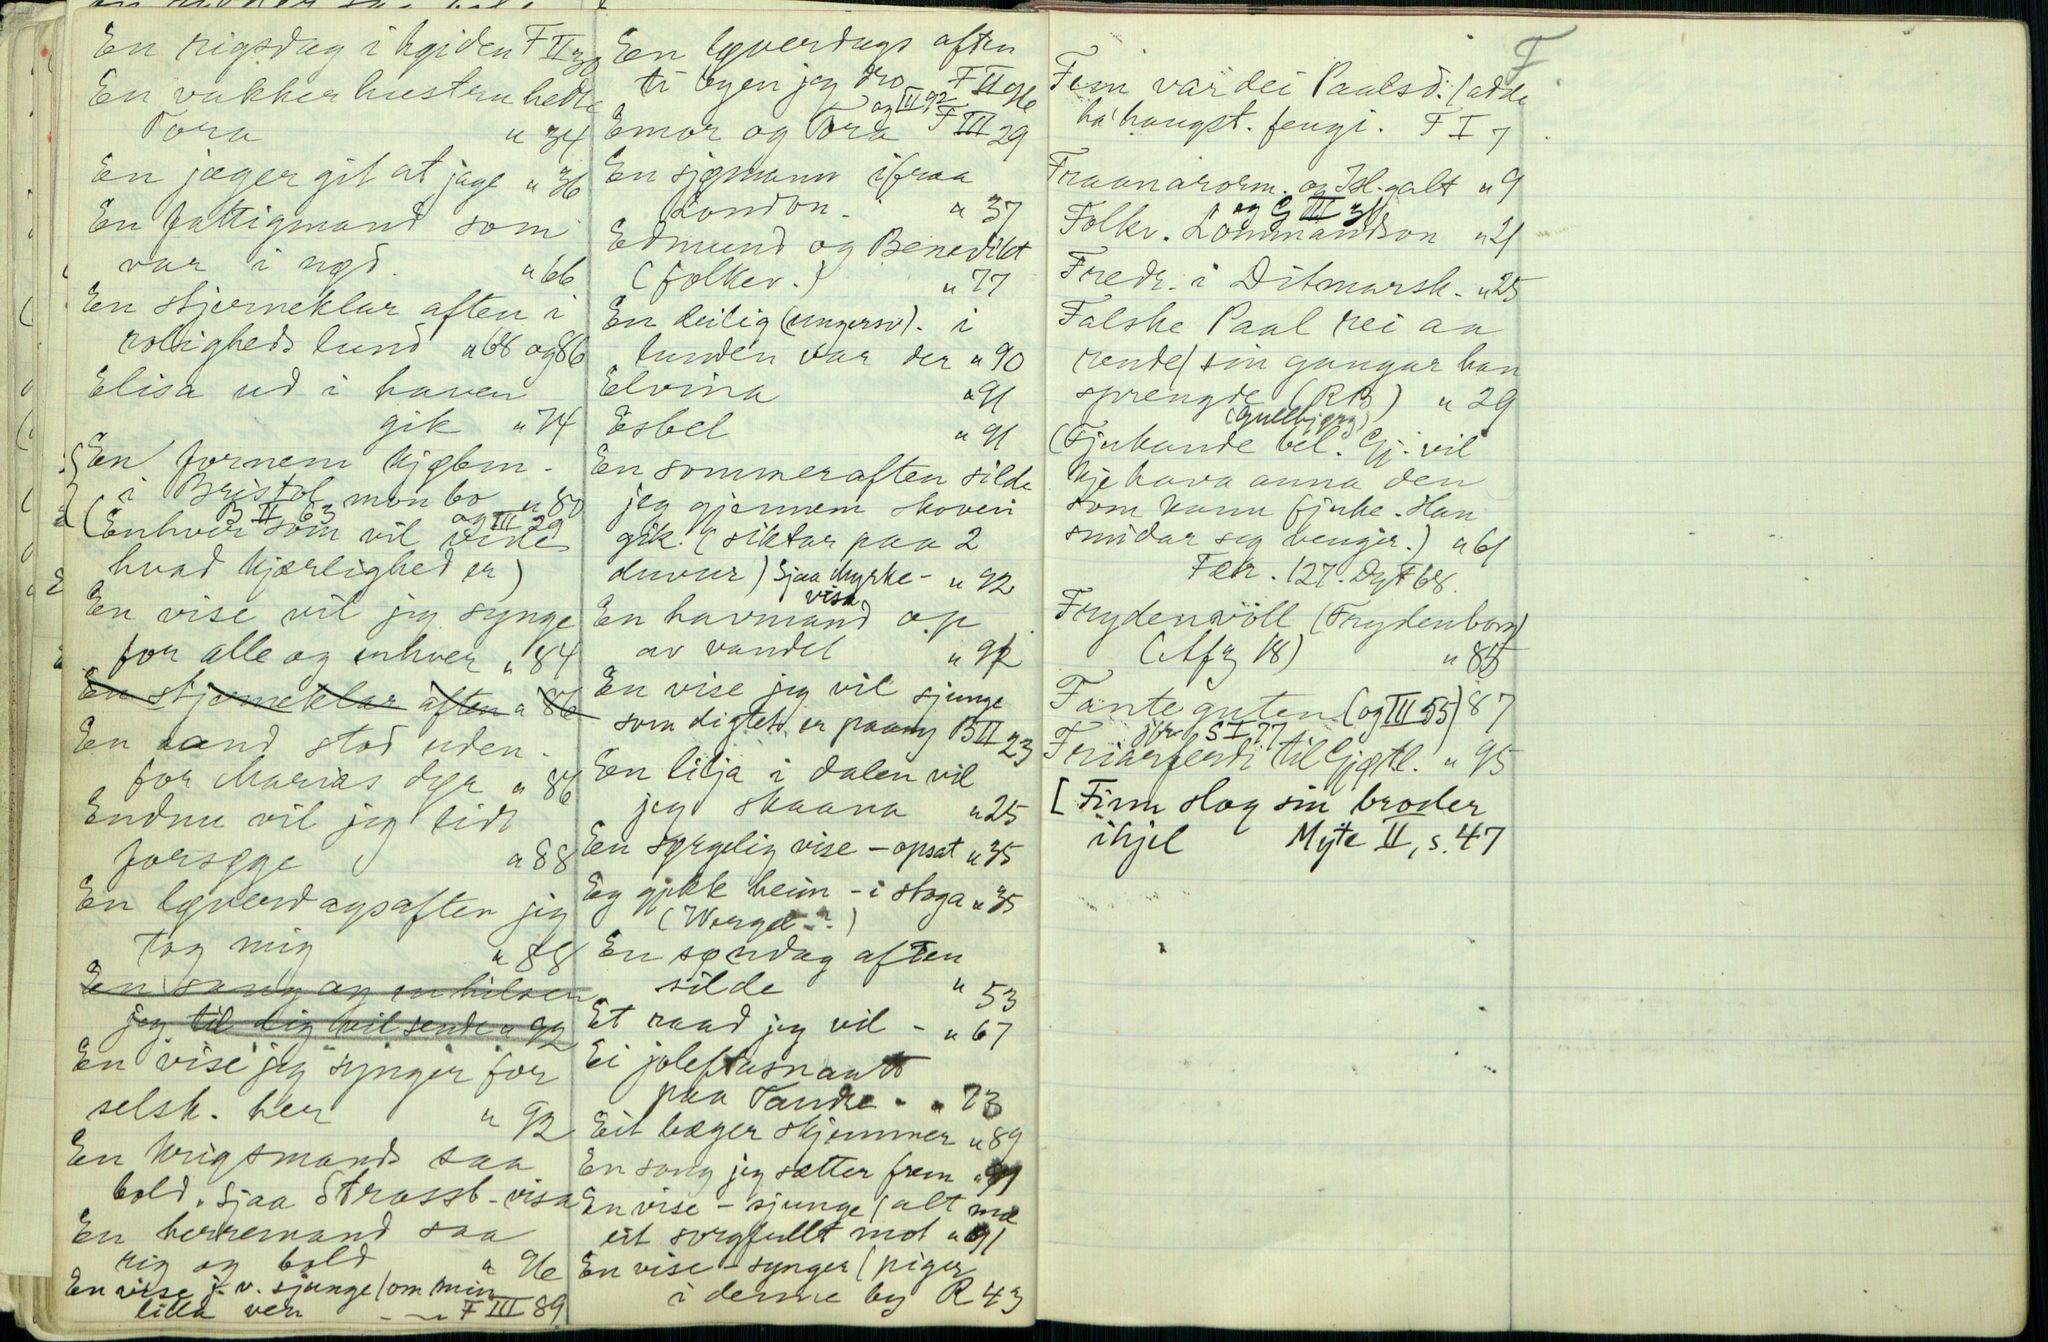 En rigsdag i høiden F II 30
En vakker hustru hedte
Tora " 34
En jæger gik at jage " 36
En fattigmand som
var i nød. " 66
En stjerneklar aften i
roligheds lund " 68 og 86
Elisa ud i haven
gik " 74
En fornem kjøbm.
i Bristol mon bo " 80
B II 63 og III 29
(Enhver som vil vide
hvad kjærlighed er)
En vise vil jeg synge
for alle og enhver " 84
En stjerneklar aften " 86
En aand stod uden-
for Marias dør " 86
Endnu vil jeg lidt
forsøge " 88
En løverdagsaften jeg
tog mig " 88
En sang og en hilsen
jeg til dig vil sende " 92
En vise jeg synger for
selsk. her " 92
En krigsmands saa
bold. Sjaa Strassb-visa
En herremand saa
rig og bold " 96
En vise j. v. sjunge / om min
lilla ven " F III 89
En løverdags aften
ti byen jeg dro F II 96
og III 92
Emor og Tora F III 29
En sjømann ifraa
London - " 37
Edmund og Benedikt
(folkev.) " 77
En deilig (ungersv). i
lunden var der " 90
Elvina " 91
Esbel " 91
En sommeraften silde
jeg gjennem skoven
gik. (siktar paa 2
duvur) Sjaa Myrke- " 92
visa
En havmand op
av vandet " 92
En vise jeg vil sjunge
som digtet er paany B II 23
En lilja i dalen vil
jeg skaana " 25
En sørgelig vise - opsat " 35
Eg gjekk heim - i stoga " 35
En søndag aften
silde " 53
Et raad jeg vil - " 67
Ei joleftasnaatt
paa Tandre - " 73
Eit bæger skjemmer " 89
En sang jeg sætter frem " 91
En vise - sjunge / alt mæ
eit sorgfullt mot " 91
En vise - synger / piger
i denne by R 43
F
Fem var dei Paalsd. / adde
ha' haugst. fengi. F I 7
Fraanarorm. og Isl. galt " 9
og G III 31
Folkv. Lommandson " 21
Fredr. i Ditmarsk. " 25
Falske Paal rei aa
rende / sin gangar han
sprengde (RB) " 29
(Gullbjørg)
(Fjukande bel. Gj. vil
kje hava anna den
som kann fjuke. Han
smidar seg venger.) " 61
Fær. 127. DgF 68.
Frydenvöll (Frydenborg)
(Afz 18) " 85
Fanteguten (og III 55) 87
jfr S I 77
Friarferdi til Gjøtl. " 95
[ Finn slog sin broder
ihjel Myte II, s. 47